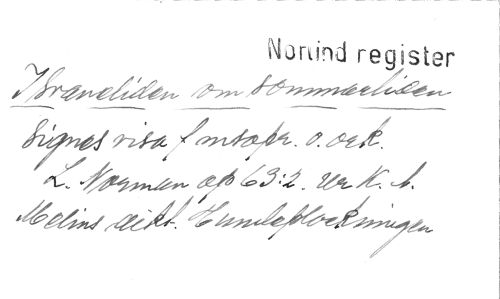 Norlind register
I Svaneliden om sommartiden
Signes visa f msopr. o. ork.
L. Norman op 63:2. Ur K. A.
Melins dikt. Humleplockningen